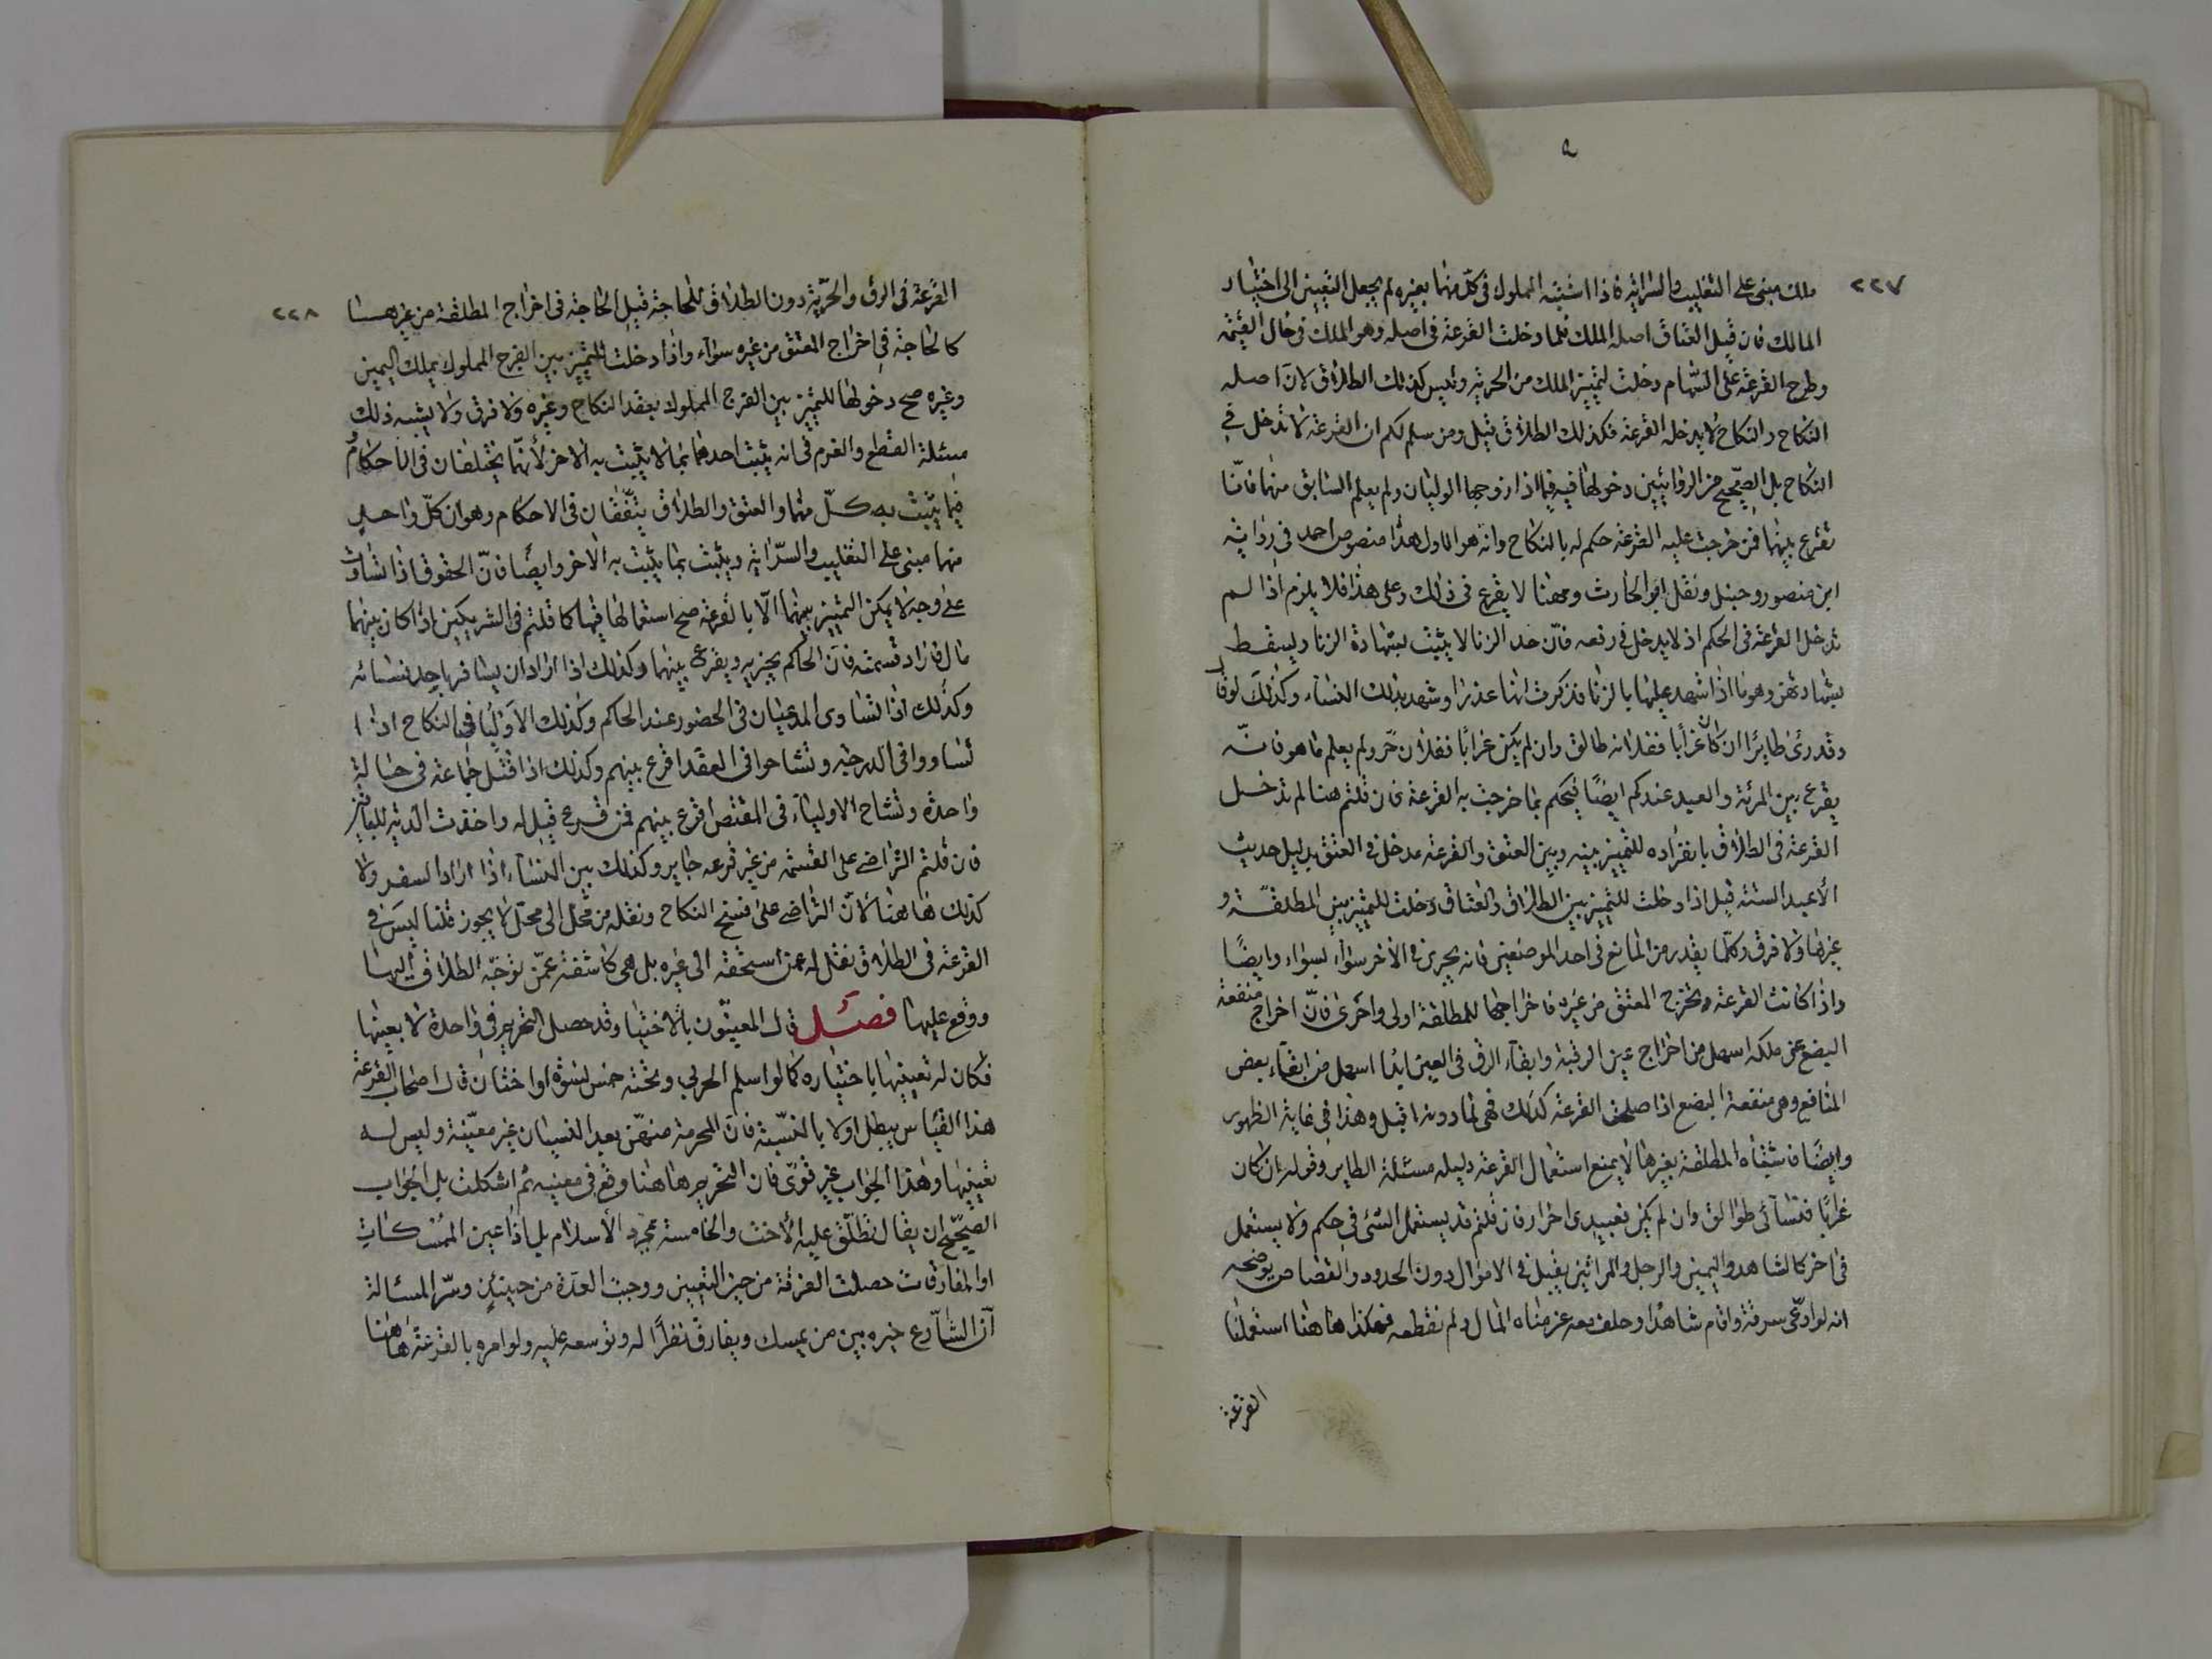 ٢٢٧
ملك مبنى على التغليب والسراية فاذا اشتبه المملوك فى كلّ منهما بغيره لم يجعل التعيين الى اختيار
المالك فان قيل العتاق اصله الملك فلما دخلت القرعة فى اصله وهو الملك فى حال القيمة
وطرح القرعة على السّهام دخلت لتمييز الملك من الحرية وليس كذلك الطلاق لانّ اصله
النكاح والنكاح لا يدخله القرعة فكذلك الطلاق قيل ومن سلم لكم ان القرعة لا تدخل فى
النكاح بل الصّحيح من الروايتين دخولها فيه فيما اذا زوجها الوليان ولم يعلم السابق منهما فانّا
نقرع بينهما فمن خرجت عليه القرعة حكم له بالنكاح وانه هو الاول هذا منصوص احمد فى رواية
ابن منصور وحنبل ونقل ابو الحارث ومهنا لا يقرع فى ذلك وعلى هذا فلا يلزم اذا لم
تدخل القرعة فى الحكم ان لا يدخل فى رفعه فانّ حد الزنا لا يثبت بشهادة الزنا ويسقط
بشهادتهن وهو ما اذا شهد عليها بالزنا فذكرت انها عذرا وشهد بذلك النساء وكذلك لو قال
وقد رئى طايرًا ان كان غرابا ففلانه طالق وان لم يكن غرابًا ففلان حّر ولم يعلم ما هو فانّه
يقرع بين المرئة والعبد عندكم ايضًا فيحكم بما خرجت به القرعة فان قلتم هنا لم تدخل
القرعة فى الطلاق بانفراده للتمييز بينه وبين العتق والقرعة مدخل فى العتق بدليل حديث
الأعبد الستة قيل اذا دخلت للتمييز بين الطلاق والعتاق دخلت للتمييز بين المطلقّة و
غيرها ولا فرق وكلّما يقدر من المانع فى احد الموضعين فانه يجرى فى الأخر سوآء بسواء وايضًا
واذا كانت القرعة تخرج المعتق من غيره فاخراجها للمطلقة اولى واحرى فانّ اخراج منفعة
البضع عن ملكه اسهل من اخراج عين الرقبة وابقآء الرق فى العين ابدًا اسهل من ابقآء بعض
المنافع وهى منفعة البضع اذا صلحت القرعة كذلك فهى لما دونه اقبل وهذا فى غاية الظهور
وايضًا فاشتباه المطلقة بغيرها لا يمنع استعمال القرعة دليله مسئلة الطاير وقوله ان كان
غرابًا فنسآئى طوالق وان لم يكن فعبيدى احرار فان قلتم قد يستعمل الشئ فى حكم ولا يستعمل
فى اخر كالشاهد واليمين والرجل والمراتين يقبل فى الاموال دون الحدود والقصاص يوضحه
انه لو ادعّى سرقة واقام شاهدًا وحلف معه غرمناه المال ولم نقطعه فهكذا هاهنا استعملنا
القرعة
٢٢٨
القرعة فى الرق والحرّية دون الطلاق للحاجة قيل الحاجة فى اخراج المطلقة من غيرها
كالحاجة فى اخراج المعتق من غيره سوآء واذا دخلت للتمييز بين الفرج المملوك بملك اليمين
وغيره صح دخولها للتمييز بين الفرج المملوك بعقد النكاح وغيره ولا فرق ولا يشبه ذلك
مسئلة القطع والغرم فى انه يثبت احدهما بما لا يثبت به الاخر لأنهّما يختلفان فى الاحكام
فيما يثبت به كلّ منهما والعتق والطلاق يتّفقان فى الاحكام وهو ان كلّ واحد
منهما مبنى على التغليب والسّراية ويثبت بما يثبت به الاخر وايضًا فانّ الحقوق اذا تساوت
على وجه لا يمكن التمييز بينهما الاّ بالقرعة صح استعمالها فيها كما قلتم فى الشريكين اذا كان بينهما
مال فاراد قسمته فانّ الحاكم يجزيه ويقرع بينهما وكذلك اذا اراد ان يسافر باحد نسائه
وكذلك اذا تساوى المدعيان فى الحضور عند الحاكم وكذلك الاوليا فى النكاح اذا
تساووا فى الدرجة وتشاحوا فى العقد اقرع بينهم وكذلك اذا قتل جماعة فى حالة
واحدة وتشاح الاولياء فى المقتص اقرع بينهم فمن قرع قتل له واخذت الدّية للباقين
فان قلتم التراضى على القسمة من غير قرعه جايز وكذلك بين النسآء اذا اراد السفر ولا
كذلك هاهنا لأنّ التراضى على فسخ النكاح ونقله من محّل الى محّل لا يجوز قلنا ليسَ فى
القرعة فى الطلاق نقل له عمن استحقه الى غيره بل هى كاشفة عمّن توجّه الطلاق اليها
ووقع عليها فصل قال المعينّون بالاختيار قد حصل التحريم فى واحدة لا بعينها
فكان له تعيينها باختياره كما لو اسلم الحربى وتحته خمس نسوة او اختان قال اصحاب القرعة
هذا القياس يبطل اولا بالمنسيّة فانّ المحرمة منهنّ بعد النسيان غير معيّنة وليس له
تعيينها وهذا الجواب غير قوّى فان التحريم هاهنا وقع فى معينه ثم اشكلت بل الجواب
الصّحيح ان يقال لا تطلّق عليه الأخت والخامسة بمجرد الأسلام بل اذا عين الممسكات
او المفارقات حصلت الفرقة من حين التعيين ووجبت العدّة من حينئذٍ وسّر المسئالة
أنّ الشّارع خيره بين من يمسك ويفارق نظرًا له وتوسعه عليه ولو امره بالقرعة هاهنا